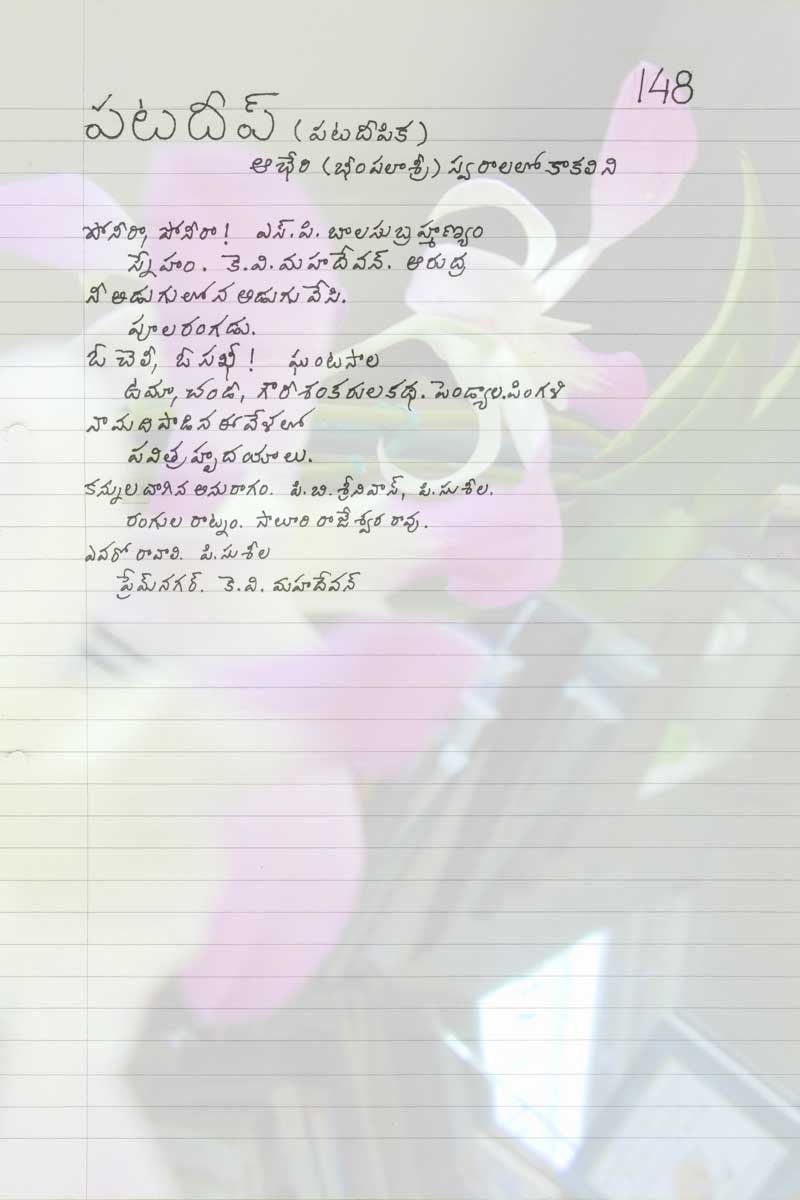 148
పటదీప్ (పటదీపిక)
ఆభేరి (భీంపలాశ్రీ) స్వరాలలో కాకలిని
పోనీరా, పోనీరా! ఎస్.పి. బాలసుబ్రహ్మణ్యం
స్నేహం. కె.వి.మహదేవన్. ఆరుద్ర
నీ అడుగులోన అడుగు వేసి.
పూలరంగడు.
ఓ చెలీ, ఓ సఖీ! ఘంటసాల
ఉమా, చండీ, గౌరీశంకరులకథ. పెండ్యాల.పింగళి
నా మది పాడిన ఈ వేళలో
పవిత్రహృదయాలు.
కన్నుల దాగిన అనురాగం. పి.బి.శ్రీనివాస్, పి.సుశీల.
రంగుల రాట్నం. సాలూరి రాజేశ్వర రావు.
ఎవరో రావాలి. పి.సుశీల
ప్రేమ్‌నగర్. కె.వి. మహదేవన్